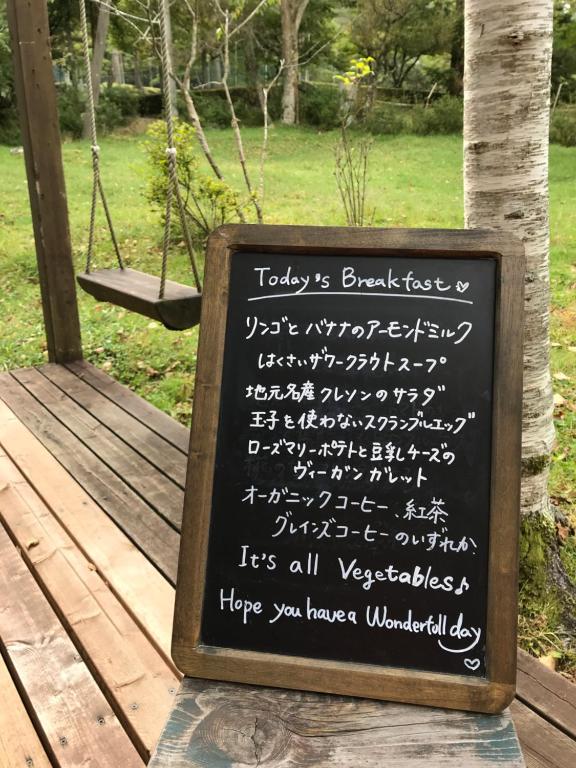 Today's Breakfast ♡
リンゴと バナナのアーモンドミルク
はくさいザワークラウトスープ
地元名産クレソンのサラダ
玉子を使わないスクランブルエッグ
ローズマリーポテトと豆乳チーズの
ヴィーガン ガレット
オーガニックコーヒー、紅茶
グレインズコーヒーのいずれか、
It's all Vegetables♪
Hope you have a Wonderfull day
♡